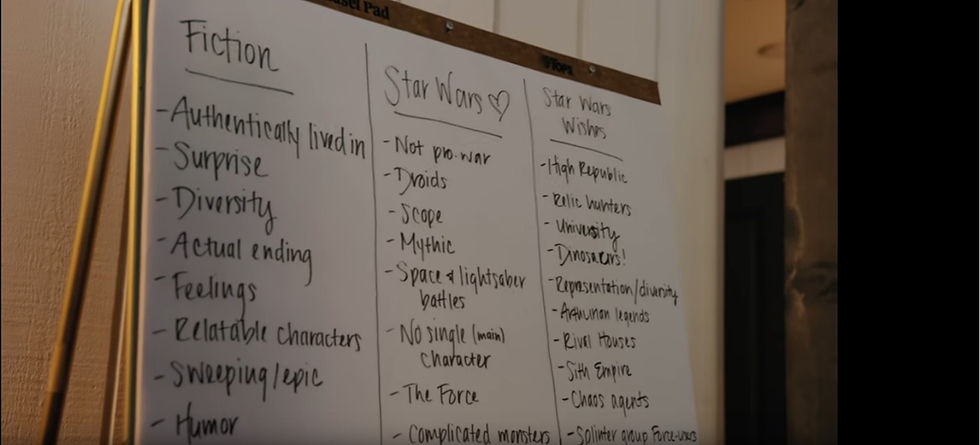 Easel Pad
TOPS
Fiction
-Authentically lived in
-Surprise
-Diversity
-Actual ending
-Feelings
-Relatable characters
-Sweeping/epic
-Humor
Star Wars ♡
-Not pro-war
-Droids
-Scope
-Mythic
-Space & lightsaber
battles
-No single (main)
character
-The Force
-Complicated monsters
Star Wars
Wishes
-High Republic
-Relic hunters
-University
-Dinosaurs!
-Representation/diversity
-Arthurian legends
-Rival Houses
-Sith Empire
-Chaos agents
-Splinter group Force-users